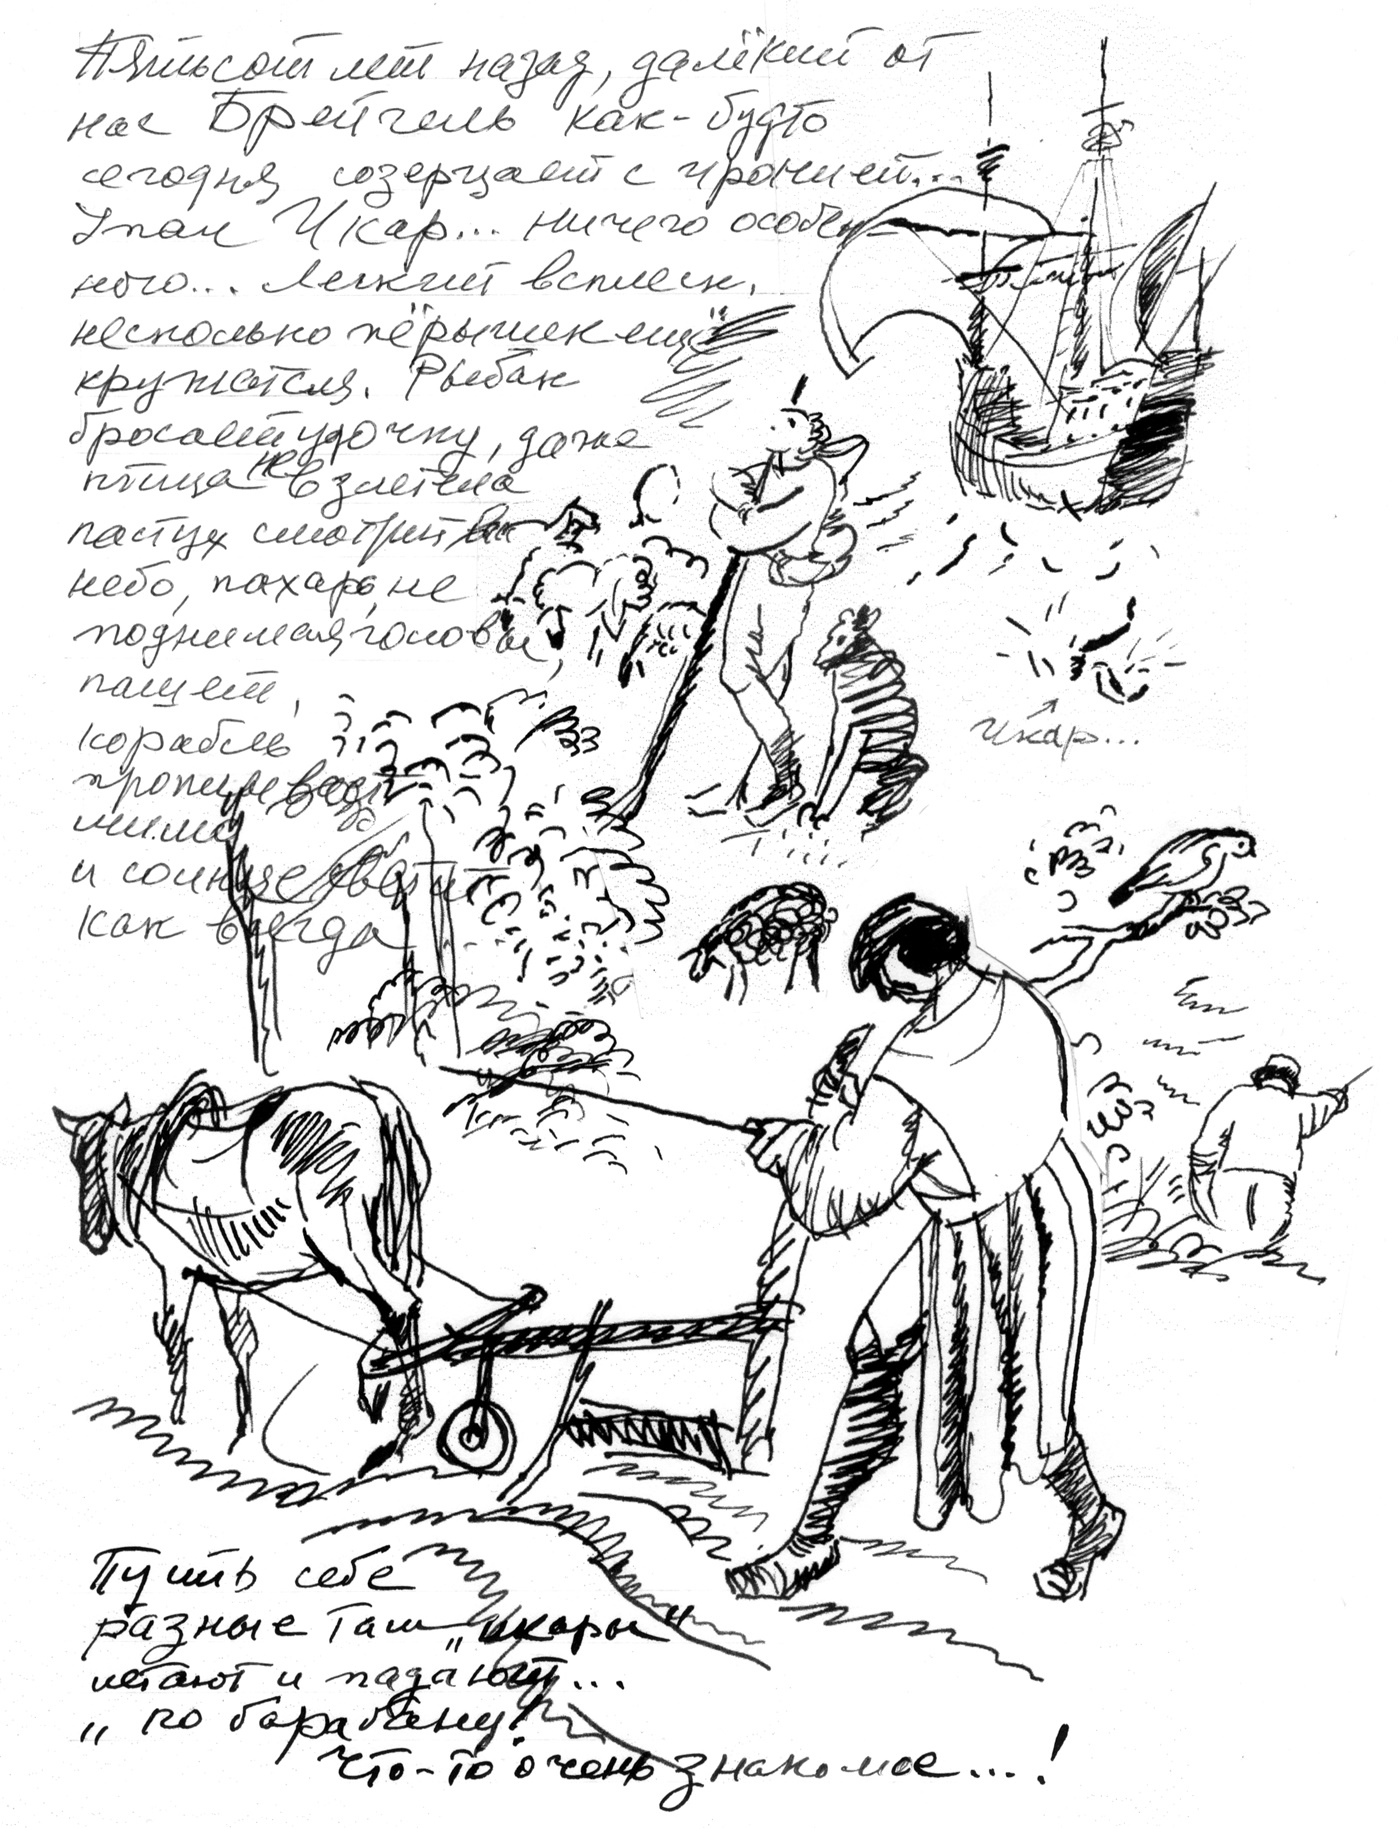 Пятьсот лет назад, далёкий от
нас Брейгель как-будто
сегодня созерцает с иронией...
Упал Икар... ничего особен
ного... Легкий всплеск,
несколько пёрышек ещё
кружатся. Рыбак
бросает удочку, даже
птица не взлетела
пастух смотрит в
небо, пахарь, не
поднимая головы,
пашет,
корабль
проплывает
мимо
и солнце светит
как всегда
Икар...
Пусть себе
разные там „икары"
летают и падают...
„по барабану"
что-то очень знакомое...!